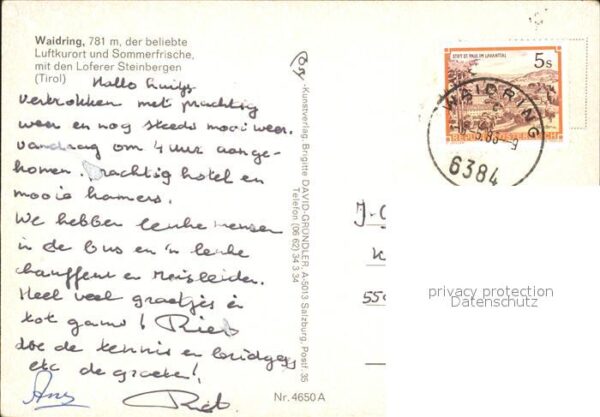 Waidring, 781 m, der beliebte
Luftkurort und Sommerfrische,
mit den Loferer Steinbergen
(Tirol)
Hallo
vertrokken met prachtig
weer en nog steeds mooi weer.
vandaag om 4 uur aange-
komen. Prachtig hotel en
mooie kamers.
We hebben leuke mensen
in de bus en 'n leuke
chauffeur en Reisleider.
Heel veel groetjes en
tot gauw! Riet
doe de tennis en bridgers
etc de groeten!
Riet
Nr. 4650 A
-Kunstverlag, Brigitte DAVID-GRÜNDLER, A-5013 Salzburg, Postf. 35
Telefon (06 62) 34 3 34
STIFT ST. PAUL IM LAVANTTAL
5s
REPUBLIK ÖSTERREICH
WAIDRING
6384
J-
550
privacy protection
Datenschutz